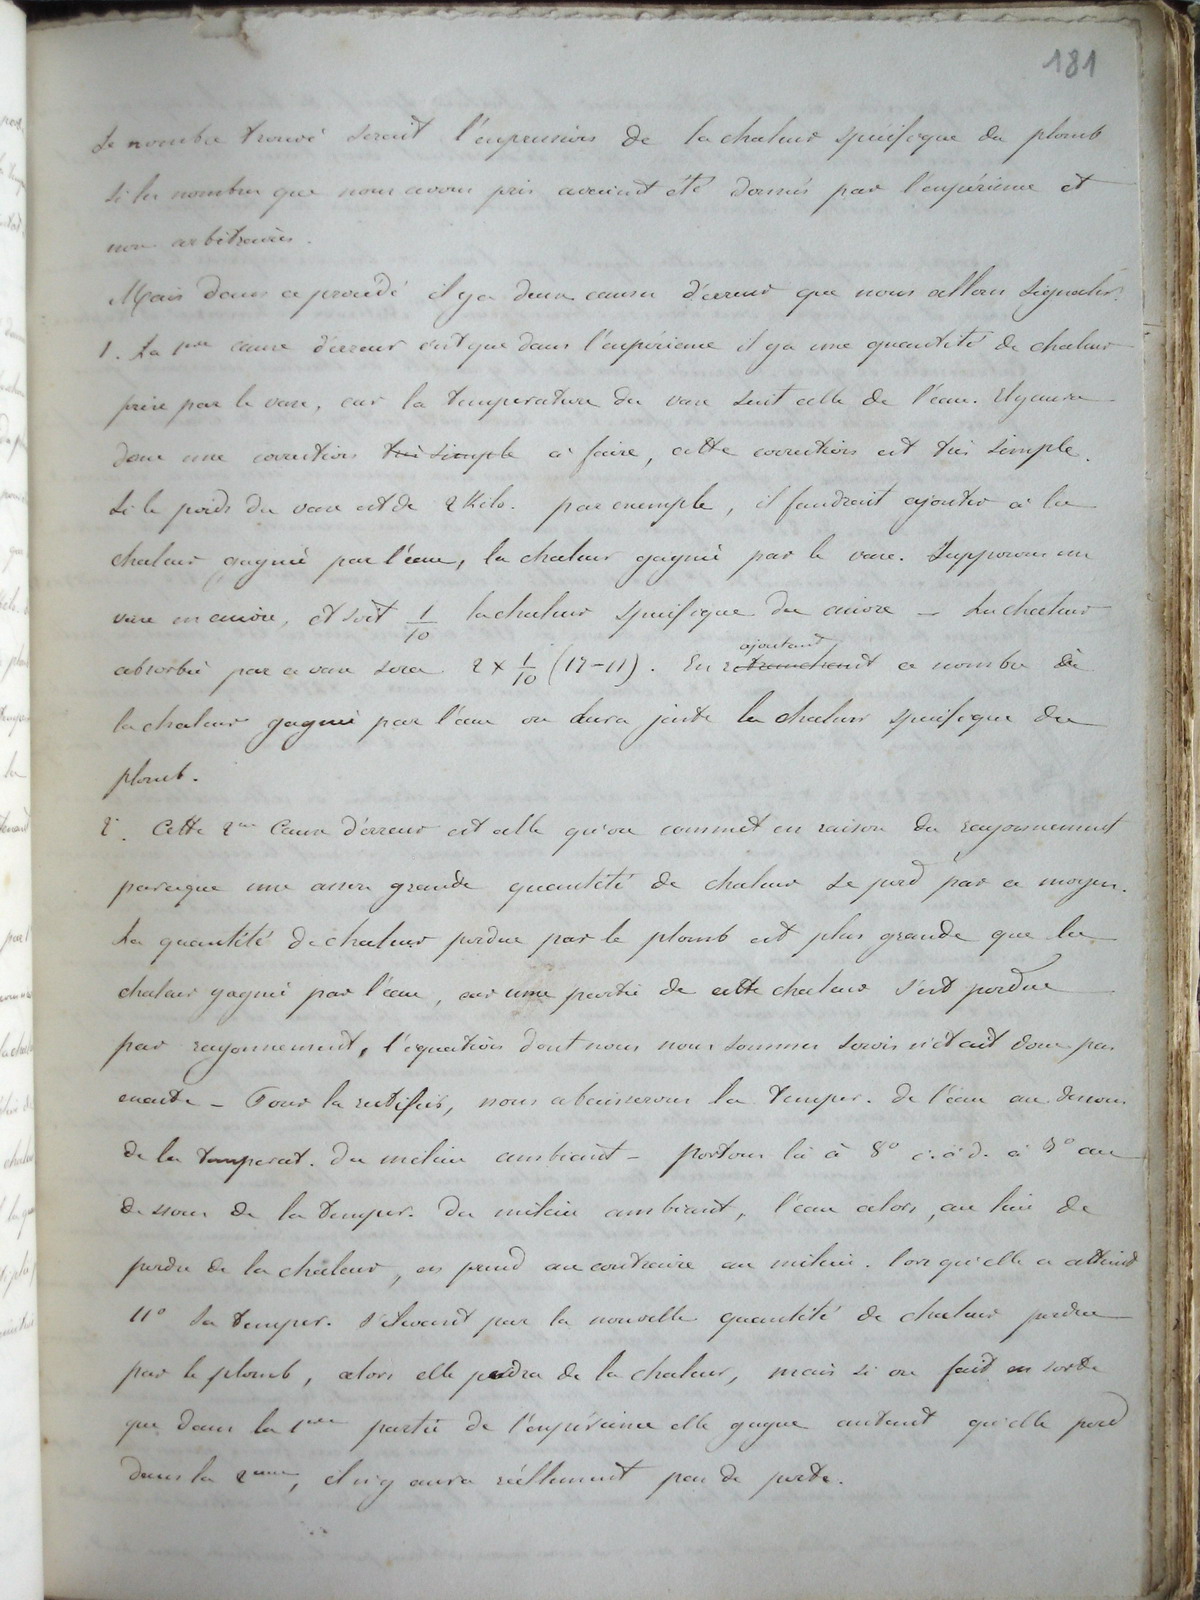 181
Le nombre trouvé serait l'expression de la chaleur spécifique du plomb
si les nombres que nous avons pris avaient été donnés par l'expérience et
non arbitraires.
Mais dans ce procédé il y a deux causes d'erreur que nous allons signaler.
1. La 1ere cause d'erreur c'est que dans l'expérience il y a une quantité de chaleur
prise par le vase, car la temperature du vase suit celle de l'eau. Il y aura
donc une correction très simple à faire, cette correction est très simple.
Si le poids du vase est de 2 Kilo. par exemple, il faudrait ajouter à la
chaleur gagnée par l'eau, la chaleur gagnée par le vase. Supposons un
vase en cuivre, et soit 1/10 la chaleur spécifique du cuivre – La chaleur
absorbée par ce vase sera 2 × 1/10 (12-11). En retranchant ajoutant ce nombre de
la chaleur gagnée par l'eau on aura juste la chaleur spécifique du
plomb.
2. Cette 2me cause d'erreur est celle qu'on commet en raison du rayonnement
parceque une assez grande quantité de chaleur se perd par ce moyen.
La quantité de chaleur perdue par le plomb est plus grande que la
chaleur gagnée par l'eau, car une partie de cette chaleur s'est perdue
par rayonnement, l'équation dont nous nous sommes servis n'était donc pas
exacte – Pour la rectifier, nous abaisserons la temper. de l'eau au dessous
de la temperat. du milieu ambiant – portons la à 8° c.à.d. à 3° au
dessous de la temper. du milieu ambiant, l'eau alors, au lieu de
perdre de la chaleur, en prend au contraire au milieu. lorsqu'elle a atteint
11° sa temper. s'élevant par la nouvelle quantité de chaleur perdue
par le plomb, alors elle perdra de la chaleur, mais si on fait en sorte
que dans la 1ere partie de l'expérience elle gagne autant qu'elle perd
dans la 2eme, il n'y aura réellement pas de perte.